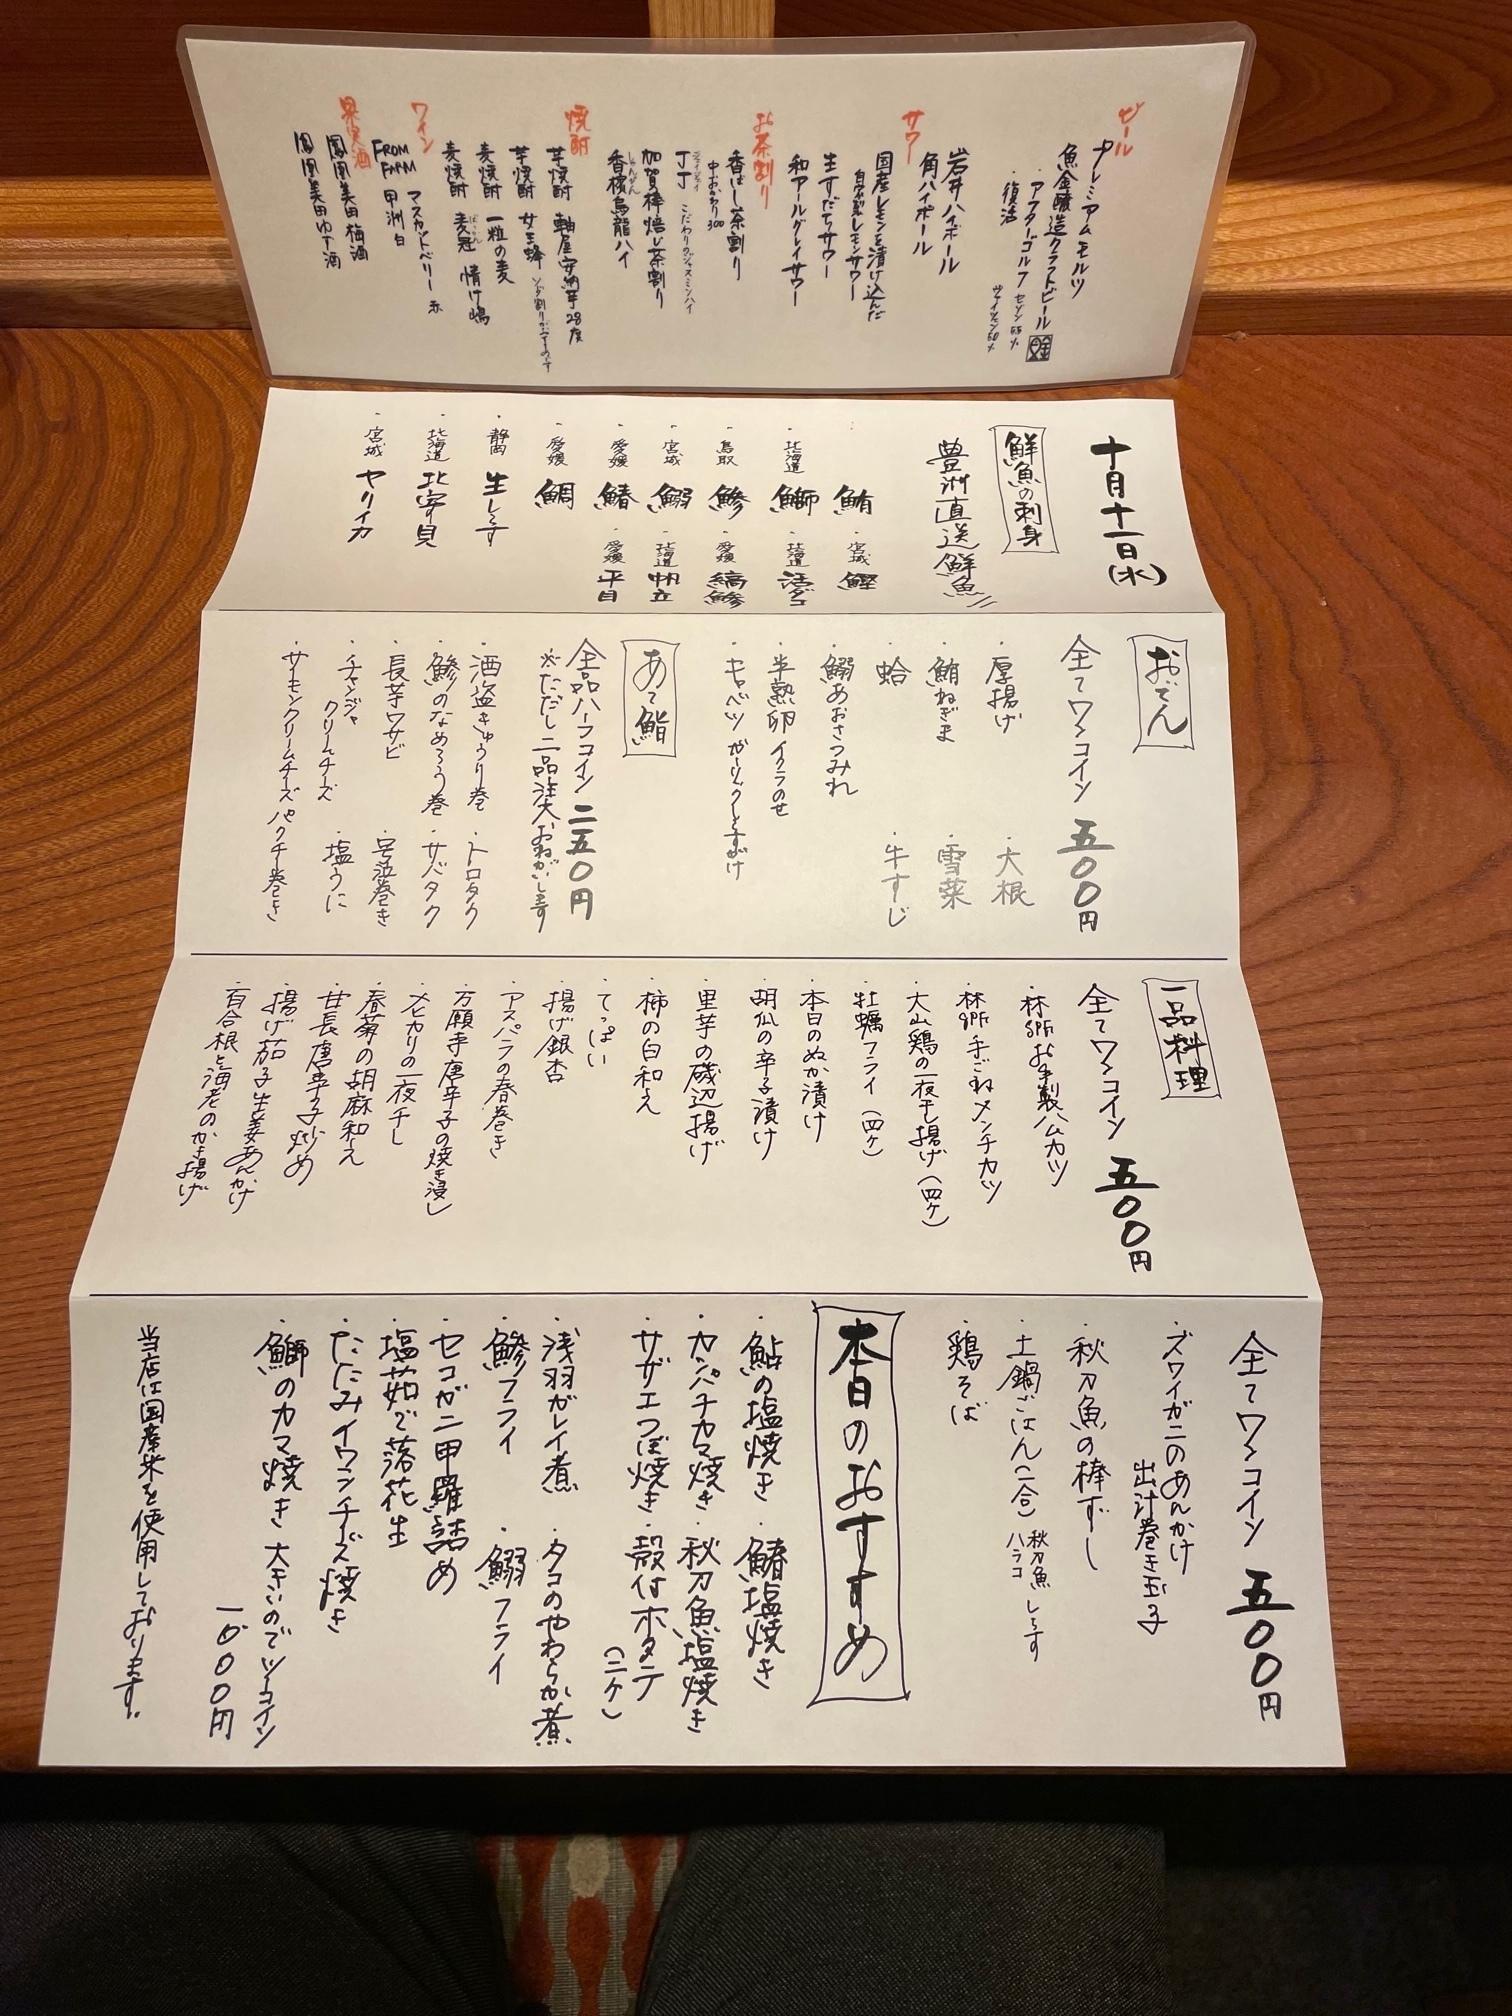 ビール
プレミアムモルツ
魚金醸造クラフトビール
・アフターゴルフ セゾン 5.5%
・復活 ヴァイツェン 5.0%
サワー
岩井ハイボール
角ハイボール
国産レモンを漬け込んだ
自家製レモンサワー
生すだちサワー
和アールグレイサワー
お茶割り
香ばし茶割り
中おかわり300
丁丁 こだわりのジャスミンハイ
加賀棒焙じ茶割り
香檳烏龍ハイ
焼酎
芋焼酎 軸屋安納芋28度
芋焼酎 女王蜂
麦焼酎 一粒の麦
麦焼酎 麦冠 情け嶋
ワイン
FROM FARM マスカットベリー 赤
甲洲 白
果実酒
鳳凰美田 梅酒
鳳凰美田 ゆず酒
十月十一日(水)
鮮魚の刺身
豊洲直送鮮魚
・鮪 ・宮城 鰹
・北海道 鰤 ・北海道 活ダコ
・鳥取 鯵 ・愛媛 縞鯵
・宮城 鰯 ・北海道 帆立
・愛媛 鰆 ・愛媛 平目
・愛媛 鯛
・静岡 生しらす
・北海道 北寄貝
・宮城 ヤリイカ
おでん
全てワンコイン 五〇〇円
・厚揚げ ・大根
・鮪ねぎま ・雪菜
・蛤 ・牛すじ
・鰯あおさつみれ
・半熟卵 イクラのせ
・キャベツ ガーリックしらすがけ
あて鮨
全品ハーフコイン 二五〇円
※ただし二品注文おねがいします
・酒盗きゅうり巻 ・トロタク
・鯵のなめろう巻 ・サバタク
・長芋ワサビ ・号泣巻き
・チャンジャ クリームチーズ ・塩うに
・サーモンクリームチーズ パクチー巻き
一品料理
全てワンコイン 五〇〇円
・林SPFお手製ハムカツ
・林SPF手ごねメンチカツ
・大山鶏の一夜干し揚げ(四ケ)
・牡蠣フライ(四ケ)
・本日のぬか漬け
・胡瓜の辛子漬け
・里芋の磯辺揚げ
・柿の白和え
・てっぱい
・揚げ銀杏
・アスパラの春巻き
・万願寺唐辛子の焼き浸し
・メヒカリの一夜干し
・春菊の胡麻和え
・甘長唐辛子炒め
・揚げ茄子生姜あんかけ
・百合根と海老のかき揚げ
全てワンコイン 五〇〇円
・ズワイガニのあんかけ
出汁巻き玉子
・秋刀魚の棒ずし
・土鍋ごはん(一合) 秋刀魚 しらす
ハラコ
・鶏そば
本日のおすすめ
・鮎の塩焼き ・鰆塩焼き
・カンパチカマ焼き ・秋刀魚塩焼き
・サザエつぼ焼き ・殻付ホタテ
(二ケ)
・浅羽ガレイ煮 ・タコのやわらか煮
・鯵フライ ・鰯フライ
・セコガニ甲羅詰め
・塩茹で落花生
・たたみイワシチーズ焼き
・鰤のカマ焼き 大きいのでツーコイン
一〇〇〇円
当店は国産米を使用しております。